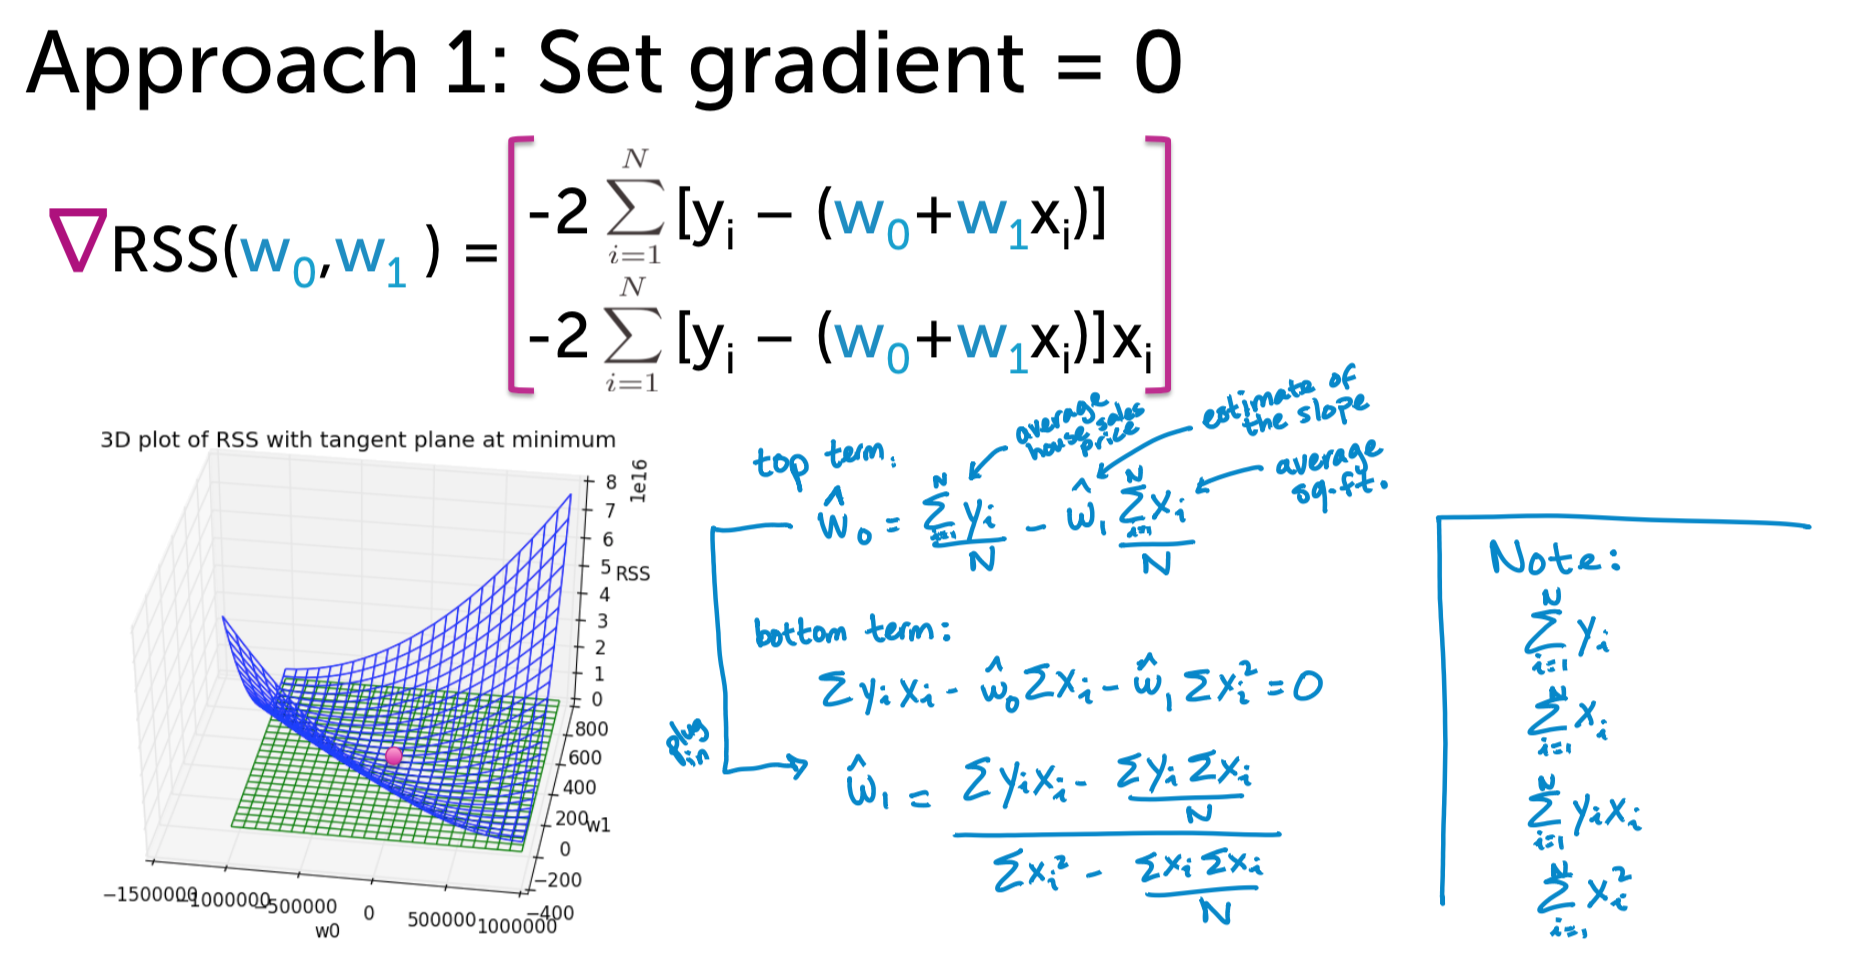 Approach 1: Set gradient = 0
∇RSS(w₀,w₁ ) = [
N
-2 ∑ [yᵢ – (w₀+w₁xᵢ)]
i=1
N
-2 ∑ [yᵢ – (w₀+w₁xᵢ)]xᵢ
i=1
]
3D plot of RSS with tangent plane at minimum
1e16
8
7
6
5
4
3
2
1
0
RSS
800
600
400
200
0
−200
−400
w1
−1500000
−1000000
−500000
0
500000
1000000
w0
top term:
average
house sales
price
estimate of
the slope
average
sq.ft.
ŵ₀ = ∑ᵢ₌₁ᴺ yᵢ / N − ŵ₁ ∑ᵢ₌₁ᴺ xᵢ / N
bottom term:
∑yᵢxᵢ - ŵ₀∑xᵢ - ŵ₁∑xᵢ² = 0
plug
in
ŵ₁ = (∑yᵢxᵢ - ∑yᵢ∑xᵢ / N) / (∑xᵢ² - ∑xᵢ∑xᵢ / N)
Note:
∑ᵢ₌₁ᴺ yᵢ
∑ᵢ₌₁ᴺ xᵢ
∑ᵢ₌₁ᴺ yᵢxᵢ
∑ᵢ₌₁ᴺ xᵢ²